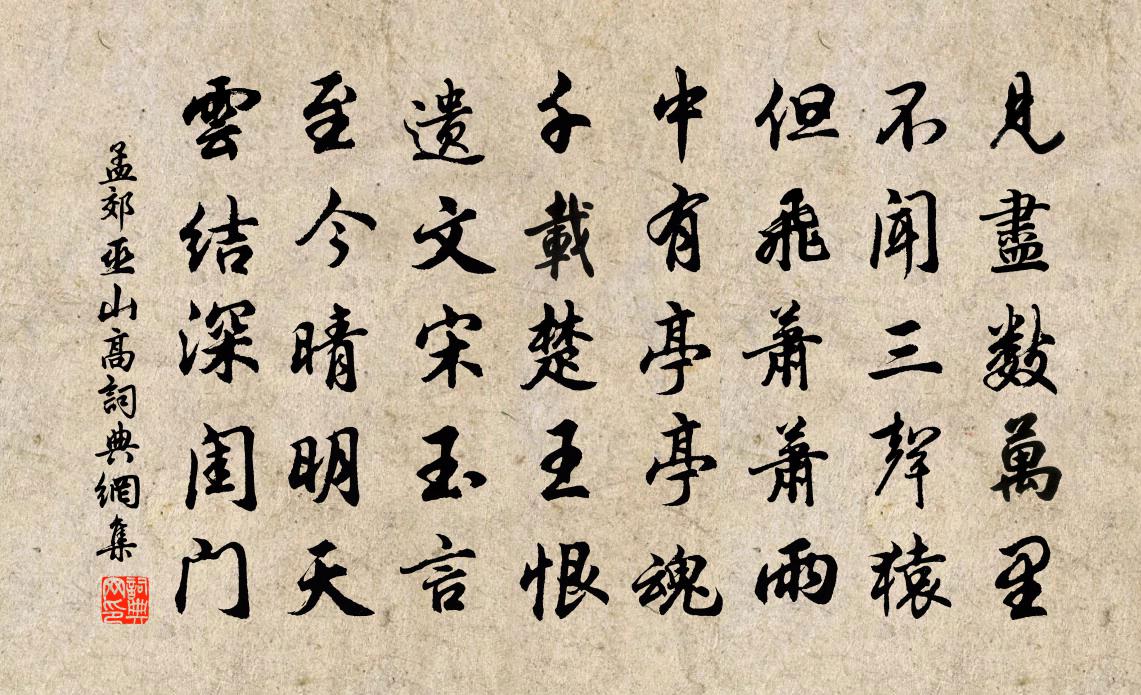 見盡數萬里
不聞三聲猿
但飛蕭蕭雨
中有亭亭魂
千載楚王恨
遗文宋玉言
至今晴明天
雲结深闺门
孟郊巫山高詞典網集
詞典网印